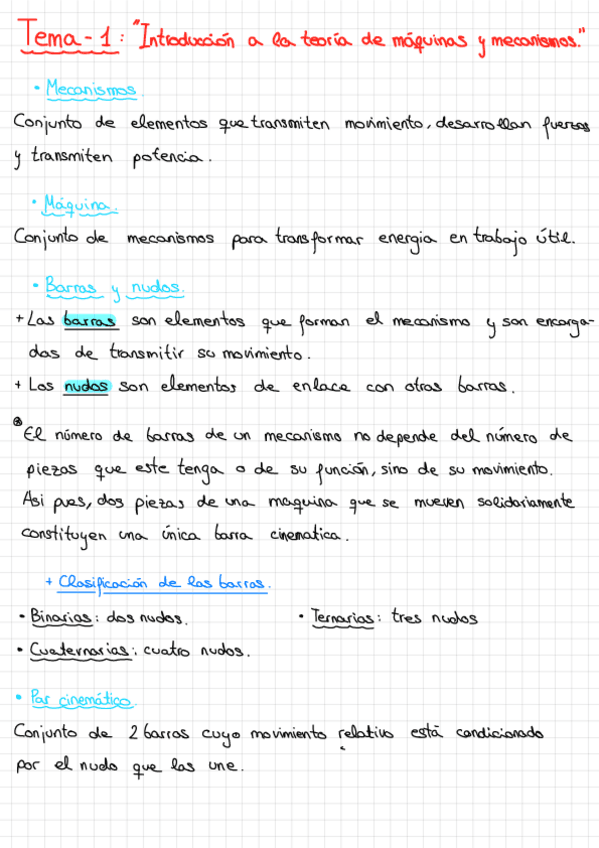 Tema-1: "Introducción a la teoría de máquinas y mecanismos."
• Mecanismos.
Conjunto de elementos que transmiten movimiento, desarrollan fuerzas
y transmiten potencia.
• Máquina.
Conjunto de mecanismos para transformar energia en trabajo útil.
• Barras y nudos.
+ Las barras son elementos que forman el mecanismo y son encarga-
das de transmitir su movimiento.
+ Los nudos son elementos de enlace con otras barras.
⊛ El número de barras de un mecanismo no depende del número de
piezas que este tenga o de su función, sino de su movimiento.
Asi pues, dos piezas de una maquina que se mueven solidariamente
constituyen una única barra cinematica.
+ Clasificación de las barras.
• Binarias: dos nudos. • Ternarias: tres nudos
• Cuaternarias: cuatro nudos.
• Par cinemático.
Conjunto de 2 barras cuyo movimiento relativo está condicionado
por el nudo que las une.